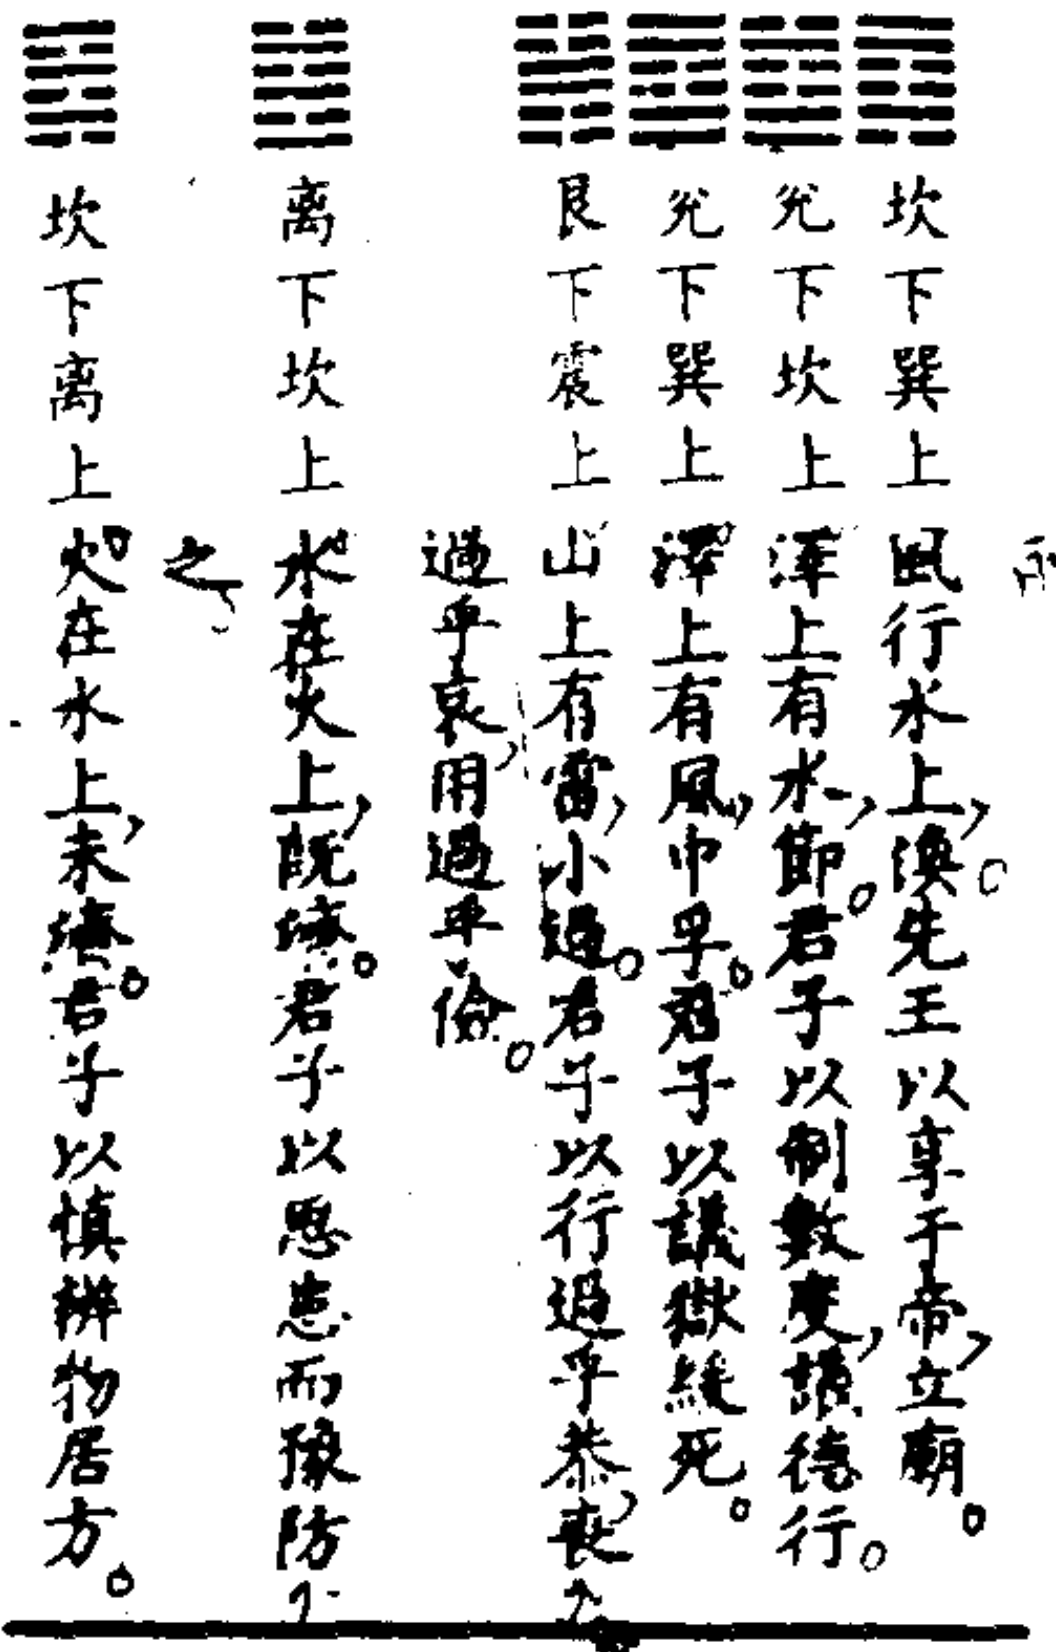 坎下巽上 風行水上，渙。先王以享于帝，立廟。
兌下坎上 澤上有水，節。君子以制數度，議德行。
兌下巽上 澤上有風，中孚。君子以議獄緩死。
艮下震上 山上有雷，小過。君子以行過乎恭，喪
過乎哀，用過乎儉。
離下坎上 水在火上，既濟。君子以思患而豫防
之。
坎下離上 火在水上，未濟。君子以慎辨物居方。